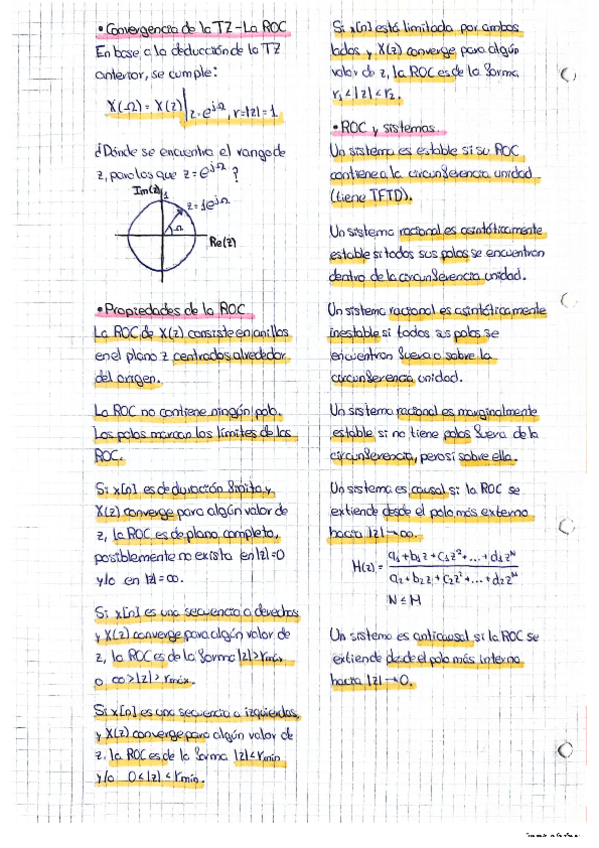 • Convergencia de la TZ - La ROC
En base a la deducción de la TZ
anterior, se cumple:
X(Ω) = X(z)|z=e^jΩ, r=|z|=1
¿Dónde se encuentra el rango de
z, para los que z=e^jΩ?
Im(z)
1
z=1e^jΩ
Ω
Re(z)
• Propiedades de la ROC
La ROC de X(z) consiste en anillos
en el plano z centrados alrededor
del origen.
La ROC no contiene ningún polo.
Los polos marcan los límites de las
ROC.
Si x[n] es de duración finita y
X(z) converge para algún valor de
z, la ROC es de plano completo,
posiblemente no exista en |z|=0
y/o en |z|=∞.
Si x[n] es una secuencia a derechas
y X(z) converge para algún valor de
z, la ROC es de la forma |z|>rmáx
o ∞>|z|>rmáx.
Si x[n] es una secuencia a izquierdas,
y X(z) converge para algún valor de
z, la ROC es de la forma |z|<rmin
y/o 0<|z|<rmin.
Si x[n] está limitada por ambos
lados y X(z) converge para algún
valor de z, la ROC es de la forma
r1<|z|<r2.
• ROC y sistemas
Un sistema es estable si su ROC
contiene a la circunferencia unidad
(tiene TFTD).
Un sistema racional es asintóticamente
estable si todos sus polos se encuentran
dentro de la circunferencia unidad.
Un sistema racional es asintóticamente
inestable si todos sus polos se
encuentran fuera o sobre la
circunferencia unidad.
Un sistema racional es marginalmente
estable si no tiene polos fuera de la
circunferencia, pero sí sobre ella.
Un sistema es causal si la ROC se
extiende desde el polo más externo
hacia |z|→∞.
H(z) = (a1+b1z+c1z²+...+d1z^N)/(a2+b2z+c2z²+...+d2z^M)
N≤M
Un sistema es anticausal si la ROC se
extiende desde el polo más interno
hacia |z|→0.